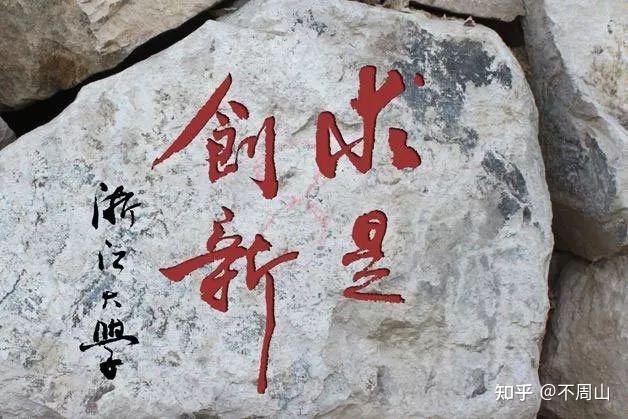 求是
创新
浙江大學
知乎 @不周山